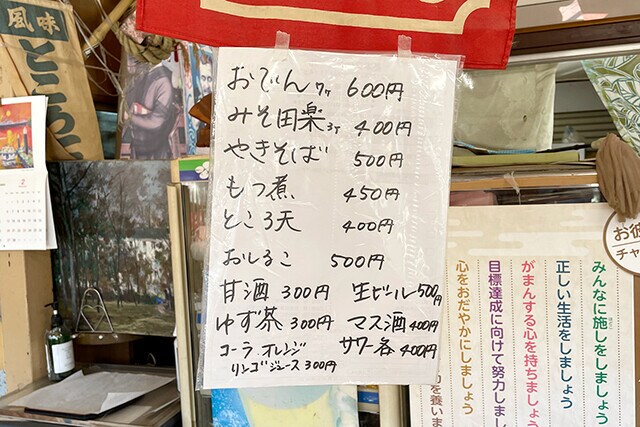 風味
ところて
おでん 7ヶ 600円
みそ田楽 3ヶ 400円
やきそば 500円
もつ煮 450円
ところ天 400円
おしるこ 500円
甘酒 300円 生ビール 500円
ゆず茶 300円 マス酒 400円
コーラ オレンジ サワー各 400円
リンゴジュース 300円
お彼
チャ
みんなに施しをしましょう
正しい生活をしましょう
がまんする心を持ちましょう
目標達成に向けて努力しまし
心をおだやかにしましょう
力を養いま